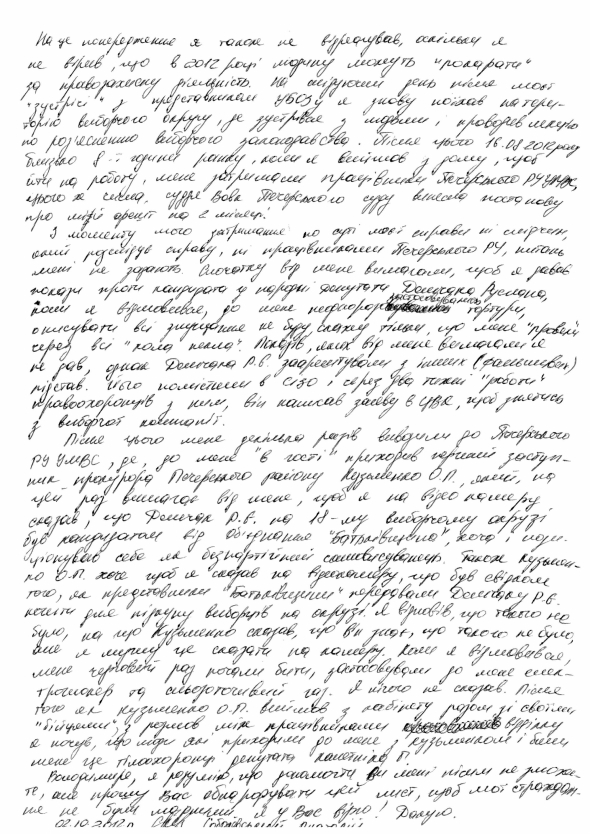 На це попередження я також не відреагував, оскільки я
не вірив, що в 2012 році людину можуть "покарати"
за правозахисну діяльність. На наступний день після моєї
"зустрічі" з представником УБОЗу я знову поїхав на тери-
торію виборчого округу, де зустрівся з людьми і проводив лекцію
по роз'ясненню виборчого законодавства. Після цього 16.08.2012 року
близько 8-ї години ранку, коли я вийшов з дому, щоб
йти на роботу, мене затримали працівники Печерського РУ УМВС,
цього ж числа, суддя Вовк Печерського суду винесла постанову
про мій арешт на 2 місяці.
З моменту мого затримання по суті моєї справи ні слідчий,
який розслідує справу, ні працівниками Печерського РУ, питань
мені не задають. Спочатку від мене вимагали, щоб я давав
покази проти кандидата у народні депутати Домчака Руслана,
коли я відмовився, до мене неодноразово застосовувались тортури,
описувати всі знущання не буду, скажу тільки, що мене "провели"
через всі "кола пекла". Показів, яких від мене вимагали я
не дав, однак Домчака Р.Є. заарештували з інших (фальшивих)
підстав. Його помістили в СІЗО і через два тижні "роботи"
правоохоронців з ним, він написав заяву в ЦВК, щоб знятись
з виборчої компанії.
Після цього мене декілька разів вивозили до Печерського
РУ УМВС, де, до мене "в гості" приходив перший заступ-
ник прокурора Печерського району Кузьменко О.П., який, на
цей раз вимагав від мене, щоб я на відео камеру
сказав, що Домчак Р.Є. на 18-му виборчому окрузі
був кандидатом від Об'єднання "Батьківщина", хоча і пози-
ціонував себе як безпартійний самовисуванець. Також Кузьмен-
ко О.П. хоче щоб я сказав на відеокамеру, що був свідком
того, як представники "Батьківщини" передавали Домчаку Р.Є.
кошти для підкупу виборців на окрузі. Я відповів, що такого не
було, на що Кузьменко сказав, що він знає, що такого не було,
але я мушу це сказати на камеру. Коли я відмовився,
мене черговий раз почали бити, застосовували до мене елек-
трошокер та сльозоточивий газ. Я нічого не сказав. Після
того як Кузьменко О.П. вийшов з кабінету разом зі своїми
"бійцями" з розмов між працівниками відділку
я почув, що люди які приходили до мене з Кузьменком і били
мене це тілоохоронці депутата
Володимире, я розумію, що допомогти Ви мені нічим не зможе-
те, але прошу Вас обнародувати цей лист, щоб мої страждан-
ня не були марними. Я у Вас вірю! Дякую.
02.10.2012р.